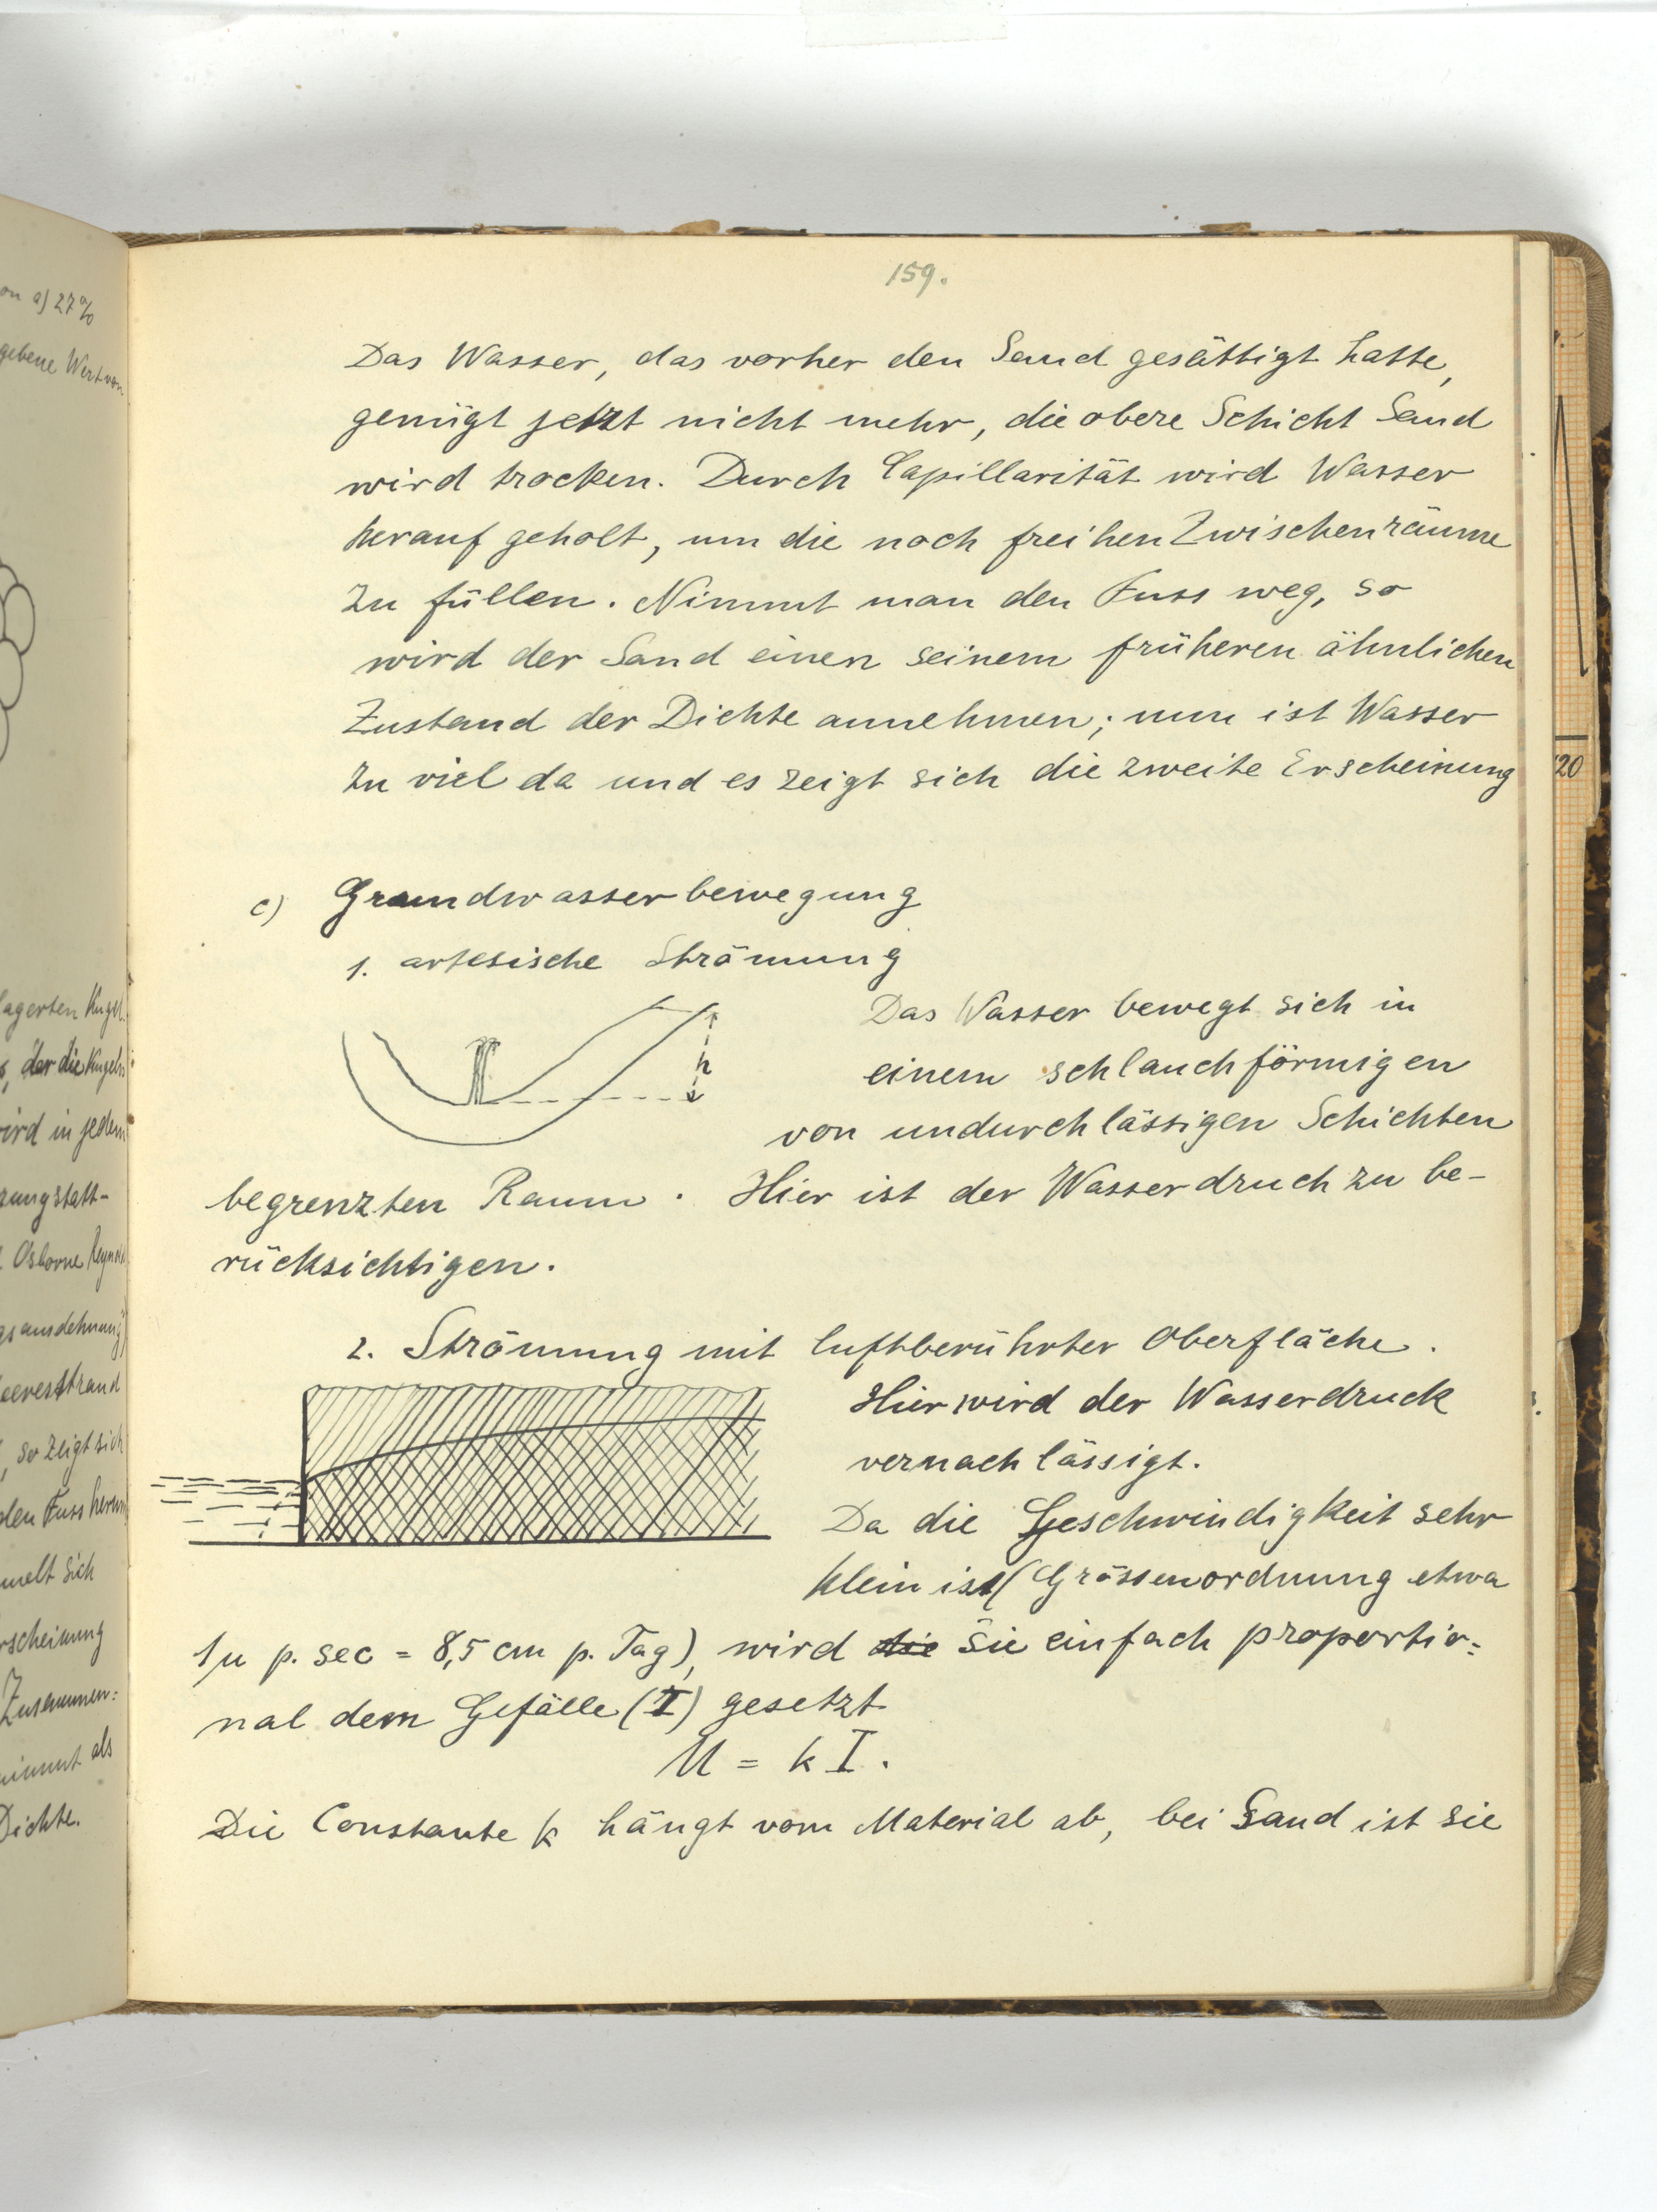 159.
Das Wasser, das vorher den Sand gesättigt hatte,
genügt jetzt nicht mehr, die obere Schicht Sand
wird trocken. Durch Capillarität wird Wasser
herauf geholt, um die noch freihen Zwischenräume
zu füllen. Nimmt man den Fuss weg, so
wird der Sand einen seinem früheren ähnlichen
Zustand der Dichte annehmen; nun ist Wasser
zu viel da und es zeigt sich die zweite Erscheinung
c) Grundwasserbewegung
1. artesische Strömung
h
Das Wasser bewegt sich in
einem schlauchförmigen
von undurchlässigen Schichten
begrenzten Raum. Hier ist der Wasserdruch zu be-
rücksichtigen.
2. Strömung mit luftberührter Oberfläche.
Hier wird der Wasserdruck
vernachlässigt.
Da die Geschwindigkeit sehr
klein ist (Grössenordnung etwa
1μ p. sec = 8,5 cm p. Tag), wird die sie einfach proportio=
nal dem Gefälle (I) gesetzt
U = k I.
Die Constante k hängt vom Material ab, bei Sand ist sie
on a) 27%
gebene Wert von
lagerten Kugel
der die Kugeln
ird in jedem
zungstatt-
Osborne Reynolds
gsausdehnung)
eeresstrand
, so zeigt sich
den Fuss herum
melt sich
rscheinung
Zusammen=
nimmt als
Dichte.
20